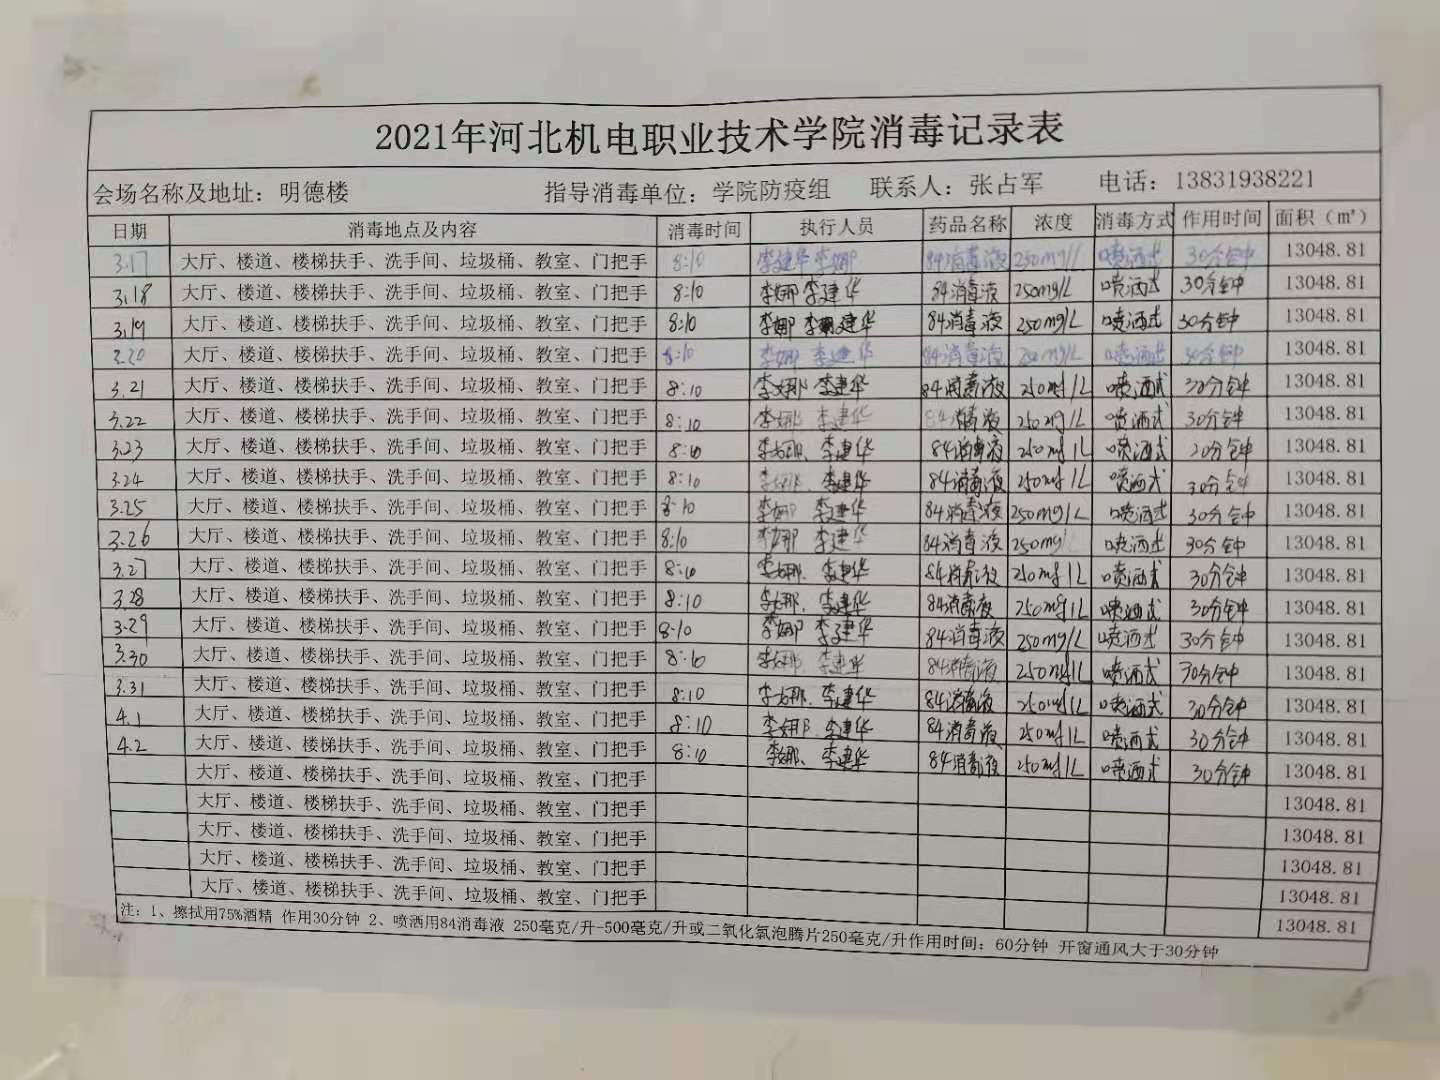 2021年河北机电职业技术学院消毒记录表
会场名称及地址：明德楼 指导消毒单位：学院防疫组 联系人：张占军 电话：13831938221
日期 消毒地点及内容 消毒时间 执行人员 药品名称 浓度 消毒方式 作用时间 面积（㎡）
3.17 大厅、楼道、楼梯扶手、洗手间、垃圾桶、教室、门把手 8:10 李建华 李娜 84消毒液 250mg/L 喷洒式 30分钟 13048.81
3.18 大厅、楼道、楼梯扶手、洗手间、垃圾桶、教室、门把手 8:10 李娜 李建华 84消毒液 250mg/L 喷洒式 30分钟 13048.81
3.19 大厅、楼道、楼梯扶手、洗手间、垃圾桶、教室、门把手 8:10 李娜 李建华 84消毒液 250mg/L 喷洒式 30分钟 13048.81
3.20 大厅、楼道、楼梯扶手、洗手间、垃圾桶、教室、门把手 8:10 李娜 李建华 84消毒液 250mg/L 喷洒式 30分钟 13048.81
3.21 大厅、楼道、楼梯扶手、洗手间、垃圾桶、教室、门把手 8:10 李娜 李建华 84消毒液 250mg/L 喷洒式 30分钟 13048.81
3.22 大厅、楼道、楼梯扶手、洗手间、垃圾桶、教室、门把手 8:10 李娜 李建华 84消毒液 250mg/L 喷洒式 30分钟 13048.81
3.23 大厅、楼道、楼梯扶手、洗手间、垃圾桶、教室、门把手 8:10 李娜、李建华 84消毒液 250mg/L 喷洒式 30分钟 13048.81
3.24 大厅、楼道、楼梯扶手、洗手间、垃圾桶、教室、门把手 8:10 李娜、李建华 84消毒液 250mg/L 喷洒式 30分钟 13048.81
3.25 大厅、楼道、楼梯扶手、洗手间、垃圾桶、教室、门把手 8:10 李娜 李建华 84消毒液 250mg/L 喷洒式 30分钟 13048.81
3.26 大厅、楼道、楼梯扶手、洗手间、垃圾桶、教室、门把手 8:10 李娜 李建华 84消毒液 250mg/L 喷洒式 30分钟 13048.81
3.27 大厅、楼道、楼梯扶手、洗手间、垃圾桶、教室、门把手 8:10 李娜、李建华 84消毒液 250mg/L 喷洒式 30分钟 13048.81
3.28 大厅、楼道、楼梯扶手、洗手间、垃圾桶、教室、门把手 8:10 李娜、李建华 84消毒液 250mg/L 喷洒式 30分钟 13048.81
3.29 大厅、楼道、楼梯扶手、洗手间、垃圾桶、教室、门把手 8:10 李娜 李建华 84消毒液 250mg/L 喷洒式 30分钟 13048.81
3.30 大厅、楼道、楼梯扶手、洗手间、垃圾桶、教室、门把手 8:10 李娜、李建华 84消毒液 250mg/L 喷洒式 30分钟 13048.81
3.31 大厅、楼道、楼梯扶手、洗手间、垃圾桶、教室、门把手 8:10 李娜、李建华 84消毒液 250mg/L 喷洒式 30分钟 13048.81
4.1 大厅、楼道、楼梯扶手、洗手间、垃圾桶、教室、门把手 8:10 李娜、李建华 84消毒液 250mg/L 喷洒式 30分钟 13048.81
4.2 大厅、楼道、楼梯扶手、洗手间、垃圾桶、教室、门把手 8:10 李娜、李建华 84消毒液 250mg/L 喷洒式 30分钟 13048.81
大厅、楼道、楼梯扶手、洗手间、垃圾桶、教室、门把手 13048.81
大厅、楼道、楼梯扶手、洗手间、垃圾桶、教室、门把手 13048.81
大厅、楼道、楼梯扶手、洗手间、垃圾桶、教室、门把手 13048.81
大厅、楼道、楼梯扶手、洗手间、垃圾桶、教室、门把手 13048.81
大厅、楼道、楼梯扶手、洗手间、垃圾桶、教室、门把手 13048.81
注：1、擦拭用75%酒精 作用30分钟 2、喷洒用84消毒液 250毫克/升-500毫克/升或二氧化氯泡腾片250毫克/升作用时间：60分钟 开窗通风大于30分钟